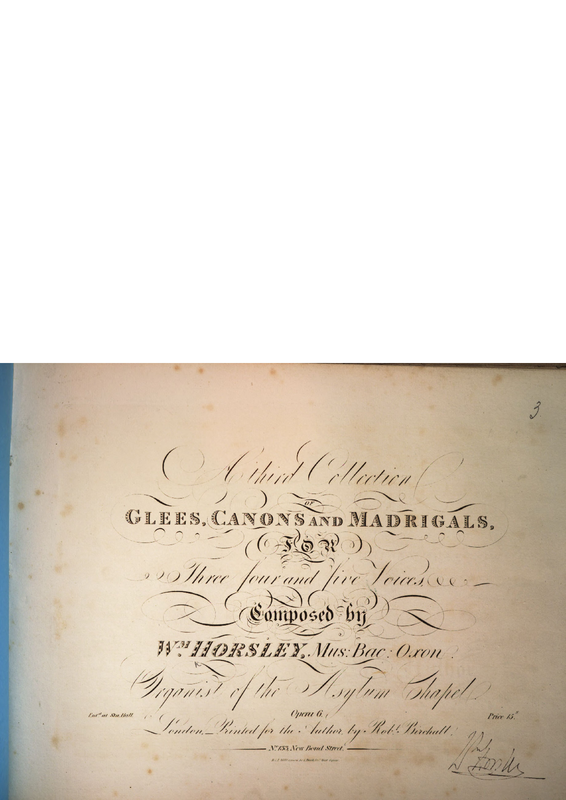 3
A third Collection
OF
GLEES, CANONS AND MADRIGALS,
FOR
Three four and five Voices,
Composed by
Wm. HORSLEY, Mus: Bac: Oxon:
Organist of the Asylum Chapel
Ent.d at Sta. Hall. Opera 6. Price 15.s
London, Printed for the Author by Rob.t Birchall,
No. 133, New Bond Street.